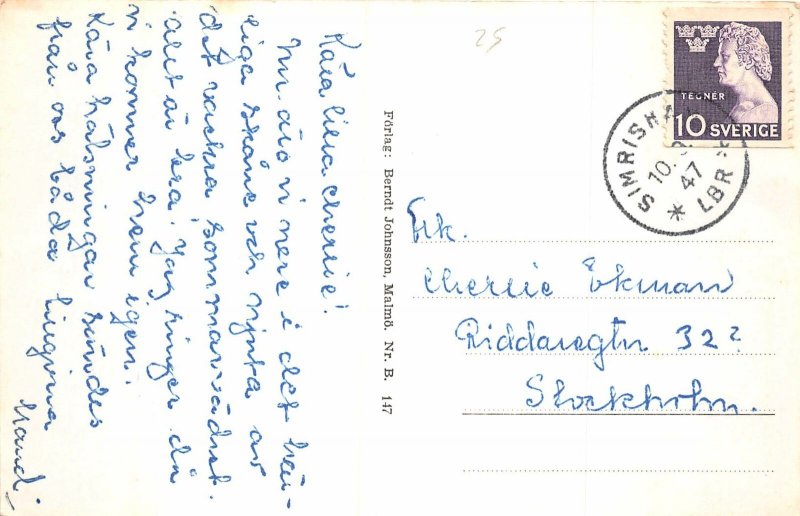 Kära lilla Cherrie!
Nu äro vi nere i det här-
liga Skåne och njuta av
det vackra sommarvädret.
allt är bra. Jag ringer då
vi kommer hem igen.
Kära hälsningar sändes
från oss båda
Maud.
Förlag: Berndt Johnsson, Malmö. Nr. B. 147
25
TEGNÉR
10 SVERIGE
SIMRISHA
10
47
* LBR *
Frk.
Cherrie Ekman
Riddaregtn 32²
Stockholm.